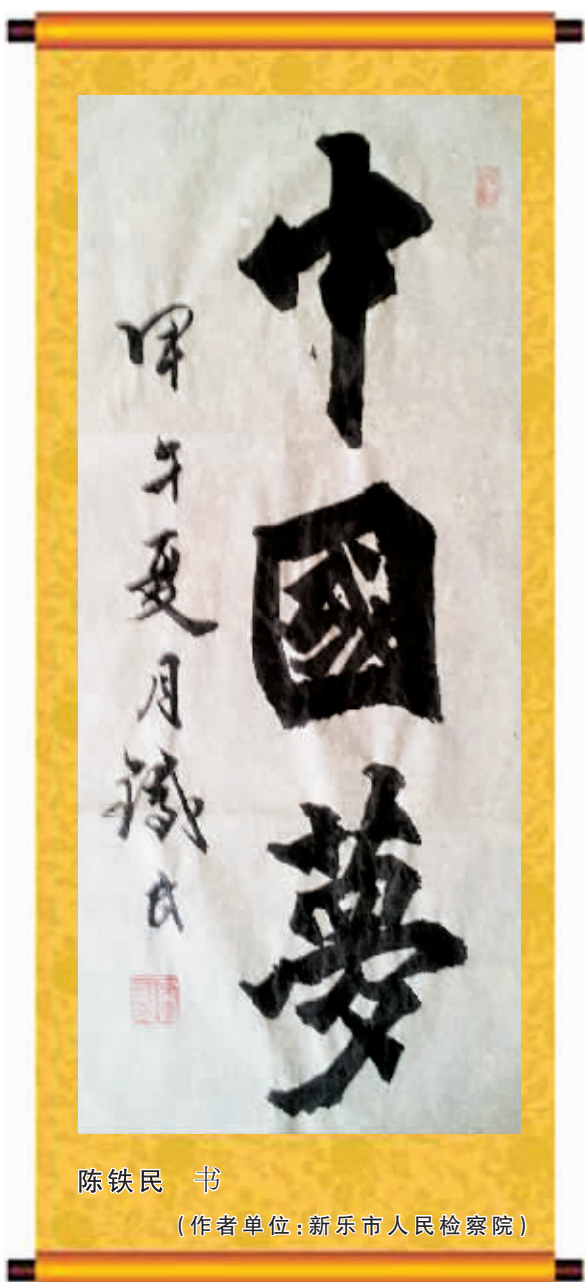 中國夢
甲午夏月鐵民
陈铁民 书
(作者单位:新乐市人民检察院)